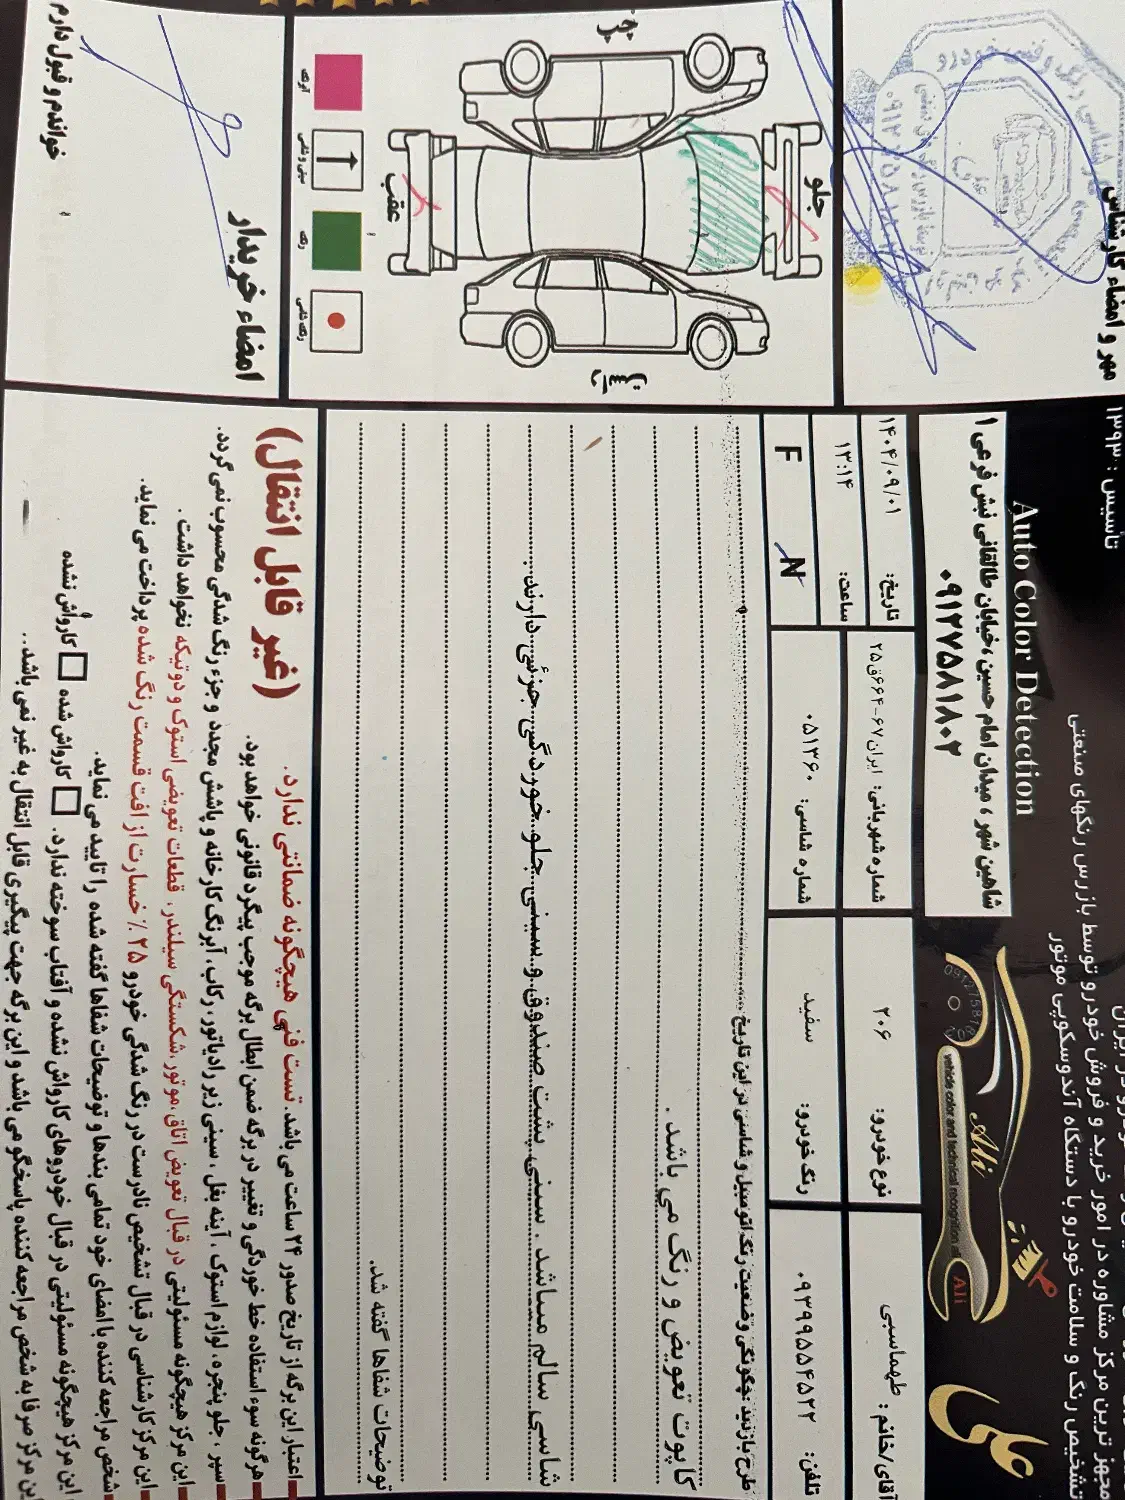 تأسیس : ۱۳۹۳
مجهز ترین مرکز مشاوره در امور خرید و فروش خودرو توسط بازرس رنگهای صنعتی
تشخیص رنگ و سلامت خودرو با دستگاه آندوسکوپی موتور
Auto Color Detection
شاهین شهر ، میدان امام حسین ، خیابان طالقانی نبش فرعی ۱
۰۹۱۲۷۵۸۱۸۰۲
علی
Ali
vehicle color and technical recognition of
Ali
آقای/خانم : طهماسبی
نوع خودرو: ۲۰۶
شماره شهربانی: ایران ۶۷-۶۶۴ق۲۵
تاریخ: ۱۴۰۴/۰۹/۰۱
ساعت: ۱۳:۱۴
تلفن: ۰۹۳۹۹۵۵۴۵۲۲
رنگ خودرو: سفید
شماره شاسی: ۰۵۱۳۶۰
F N
طرح بازدید :چگونگی وضعیت رنگ اتومبیل و شاسی در این تاریخ
کاپوت تعویض و رنگ می باشد .
شاسی سالم میباشد . سنی پشت صندوق و سینی جلو خوردگی جزئی دارند.
توضیحات شفاها گفته شد.
مهر و امضاء کارشناس
جلو
عقب
چپ
راست
آبرنگ
سینی و شاسی
رنگ
رنگ شاسی
امضاء خریدار
خواندم و قبول دارم
اعتبار این برگه از تاریخ صدور ۲۴ ساعت می باشد. تست فنی هیچگونه ضمانتی ندارد. (غیر قابل انتقال)
هرگونه سوء استفاده خط خوردگی و تغییر در برگه ضمن ابطال برگه موجب پیگرد قانونی خواهد بود.
سپر ، جلو پنجره، لوازم استوک ، آینه بغل ، سینی زیر رادیاتور ، رکاب ، آبرنگ کارخانه و پاشش مجدد و جزء رنگ شدگی محسوب نمی گردد.
این مرکز هیچگونه مسئولیتی در قبال تعویض اتاق ،موتور ،شکستگی سیلندر، قطعات تعویضی استوک و دوتیکه نخواهد داشت .
این مرکز کارشناسی در قبال تشخیص نادرست در رنگ شدگی خودرو ۲۵٪ خسارت از افت قسمت رنگ شده پرداخت می نماید.
شخص مراجعه کننده با امضای خود تمامی بندها و توضیحات شفاها گفته شده را تایید می نماید.
این مرکز هیچگونه مسئولیتی در قبال خودروهای کارواش نشده و آفتاب سوخته ندارد. کارواش شده کارواش نشده
این مرکز صرفا به شخص مراجعه کننده پاسخگو می باشد و این برگه جهت پیگیری قابل انتقال به غیر نمی باشد..